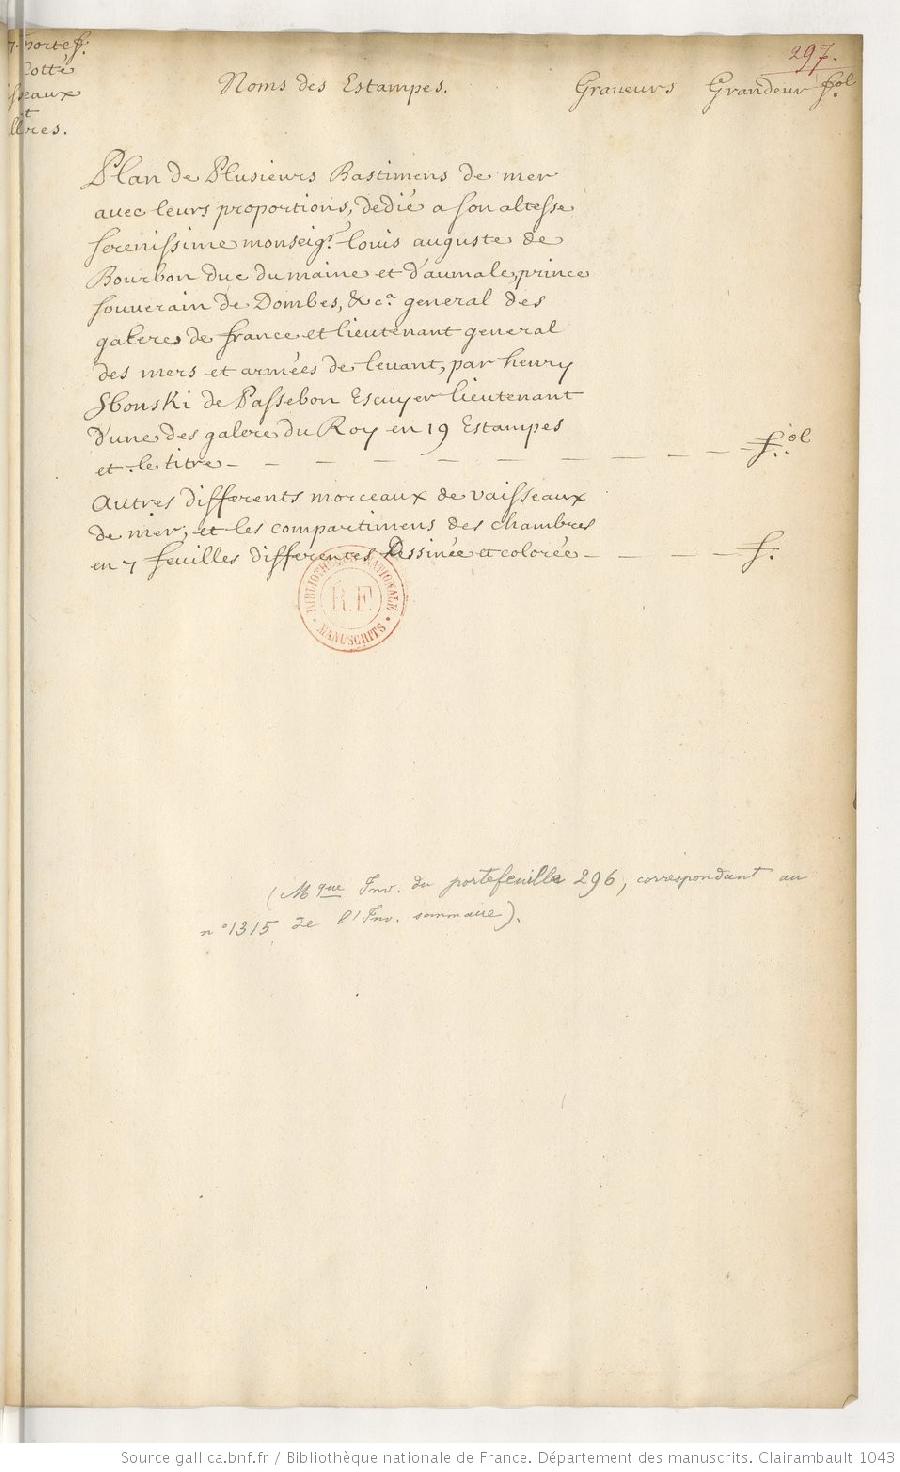 297.
portef.
Cotté
seaux
et
lleres.
Noms des Estampes. Graueurs Grandeur fol
Plan de Plusieurs Bastimens de mer
auec leurs proportions, dedié a son altesse
serenissime monseigr. louis auguste de
Bourbon duc du maine et d'aumale, prince
souuerain de Dombes, &ca. general des
galeres de france et lieutenant general
des mers et armées de leuant, par henry
Sbonski de Passebon Escuyer lieutenant
d'une des galere du Roy en 19 Estampes
et le titre - - - - - - - - - fol
Autres differents morceaux de vaisseaux
de mer, et les compartimens des chambres
en 7 feuilles differentes Dessinée et colorée - - - - f.
BIBLIOTHEQUE NATIONALE
R.F.
MANUSCRITS
(Mque Inv. du portefeuille 296, correspondant au
n° 1315 de l'Inv. sommaire).
Source gallica.bnf.fr / Bibliothèque nationale de France. Département des manuscrits. Clairambault 1043